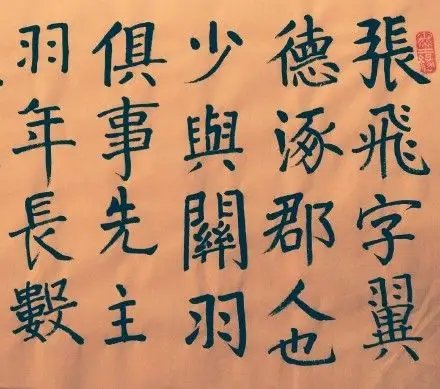 張飛字翼
德涿郡人也
少與關羽
俱事先主
羽年長數